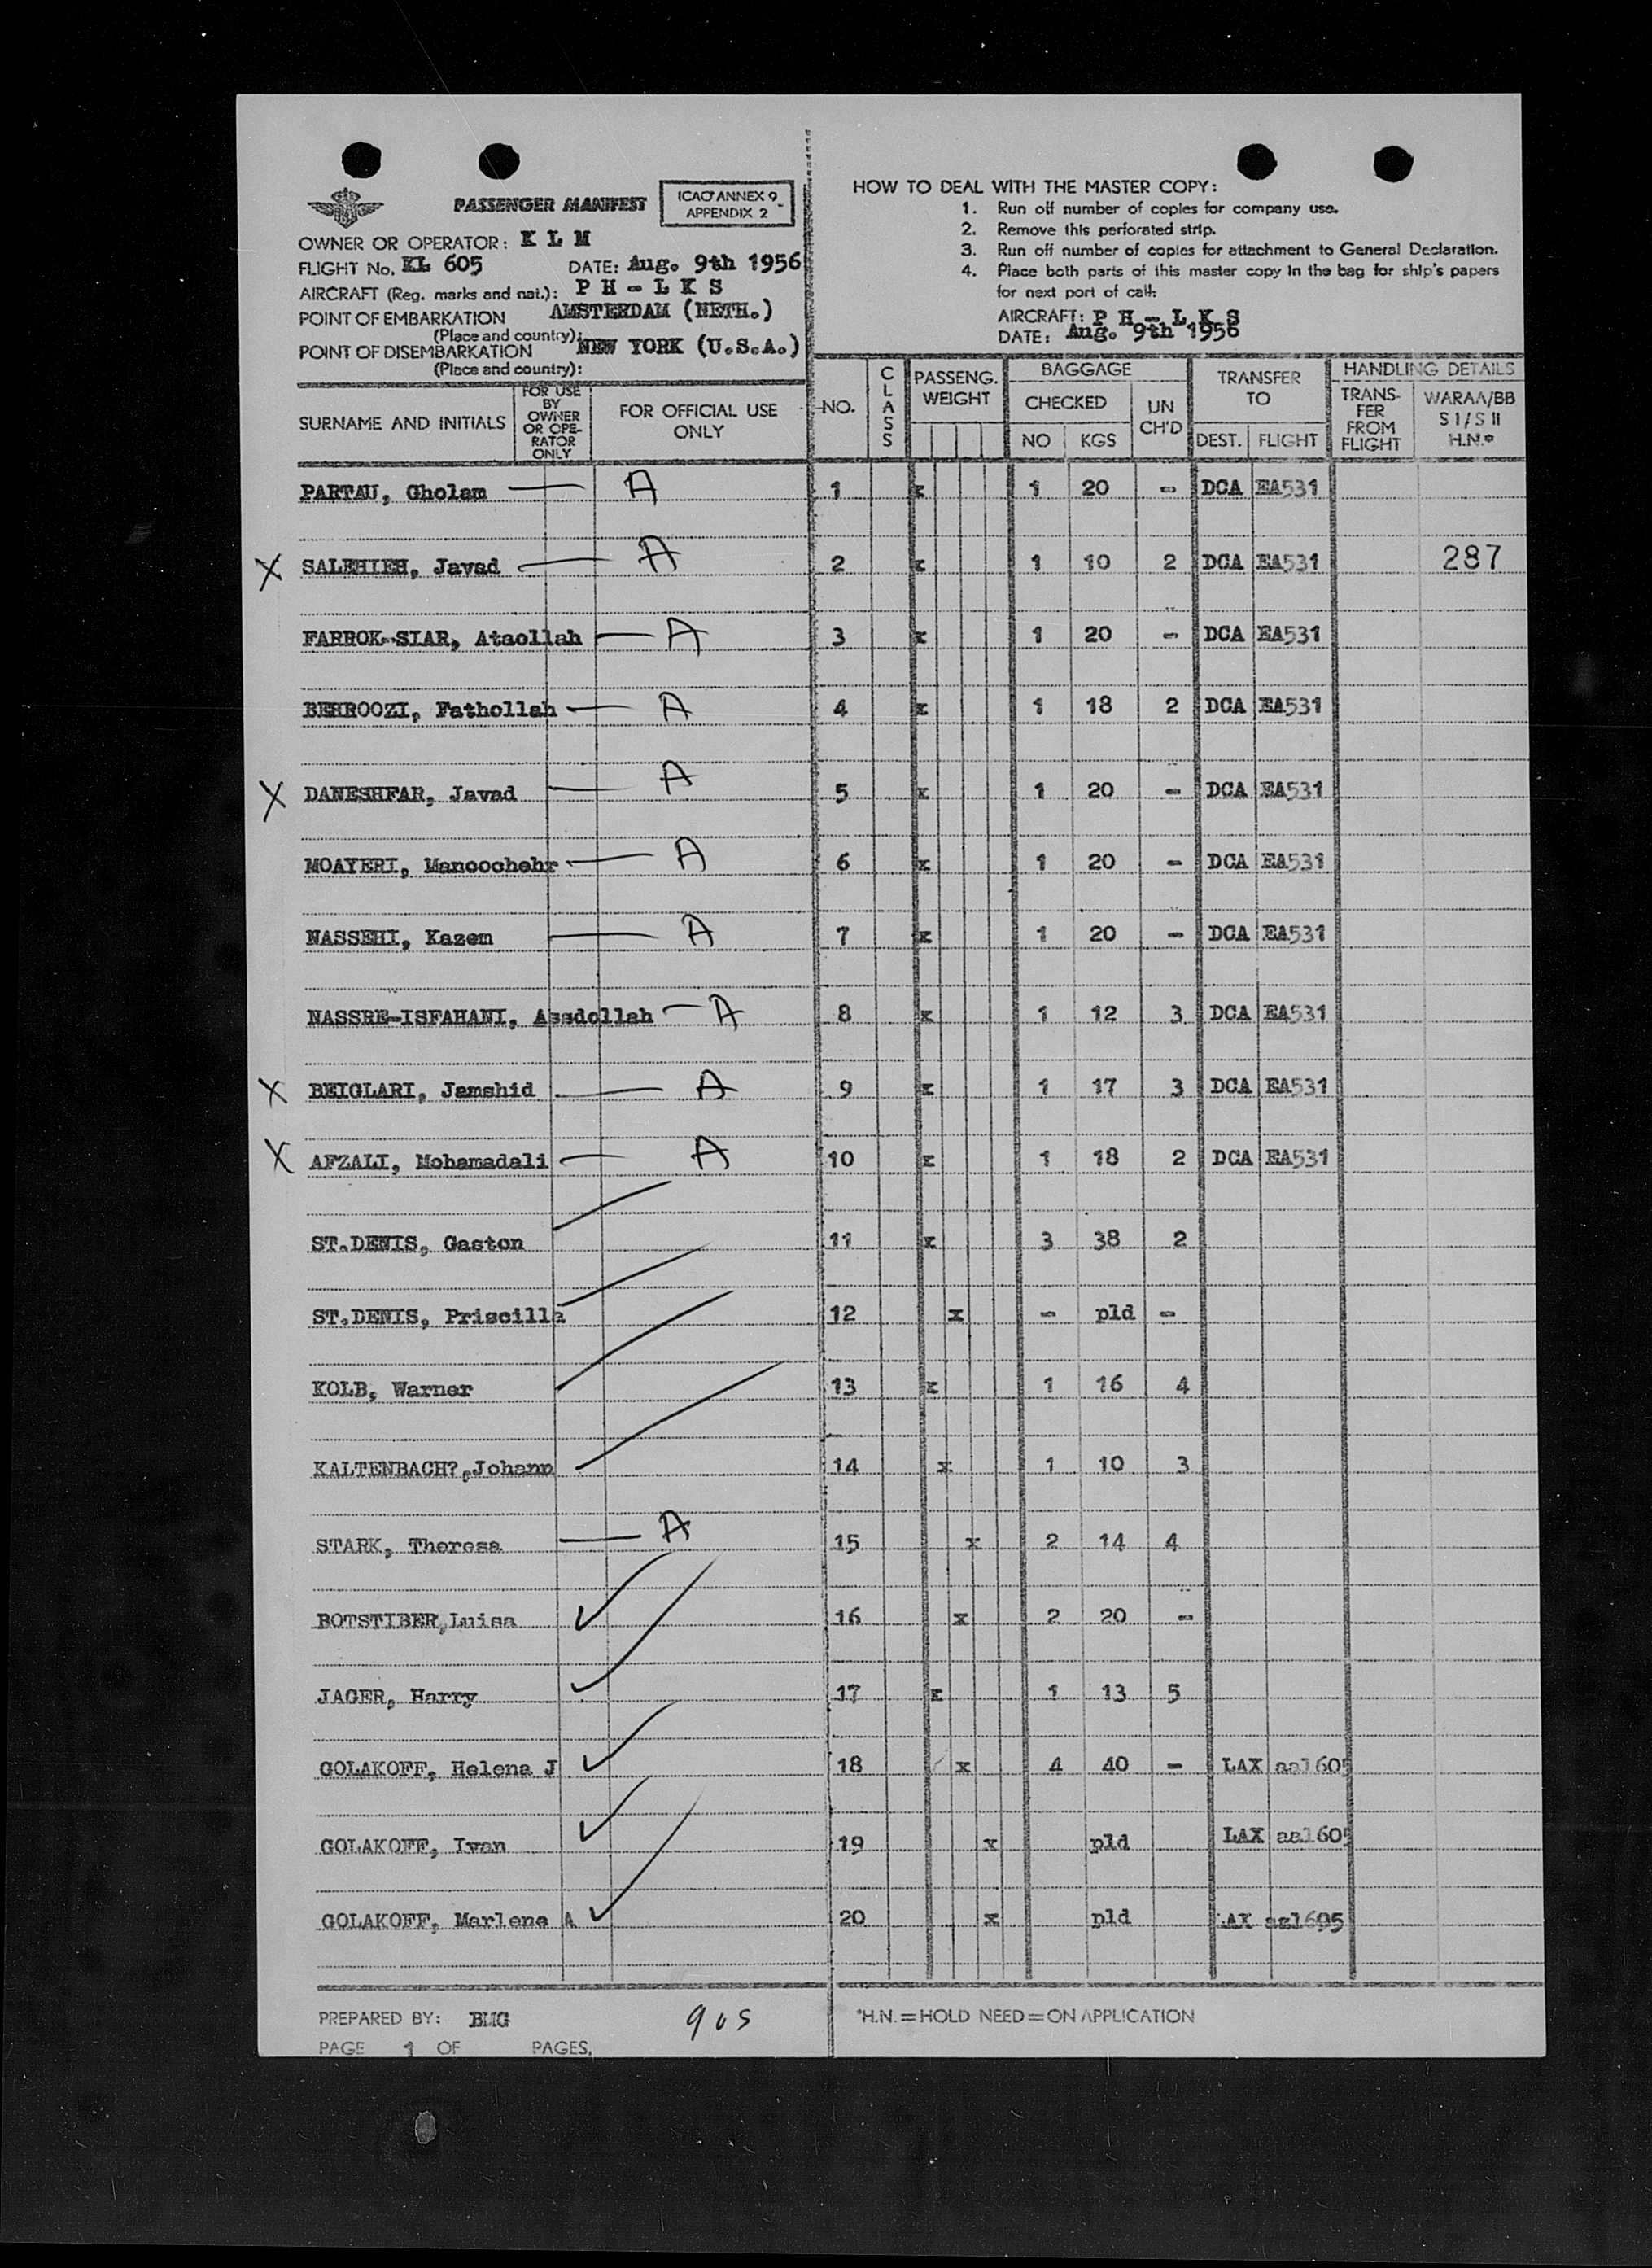 PASSENGER MANIFEST
ICAO ANNEX 9
APPENDIX 2
OWNER OR OPERATOR: K L M
FLIGHT No. KL 605 DATE: Aug. 9th 1956
AIRCRAFT (Reg. marks and nat.): P H - L K S
POINT OF EMBARKATION AMSTERDAM (NETH.)
(Place and country):
POINT OF DISEMBARKATION NEW YORK (U.S.A.)
(Place and country):
HOW TO DEAL WITH THE MASTER COPY:
1. Run off number of copies for company use.
2. Remove this perforated strip.
3. Run off number of copies for attachment to General Declaration.
4. Place both parts of this master copy in the bag for ship's papers
for next port of call:
AIRCRAFT: P H - L K S
DATE: Aug. 9th 1956
SURNAME AND INITIALS
FOR USE
BY
OWNER
OR OPE-
RATOR
ONLY
FOR OFFICIAL USE
ONLY
NO.
CLASS
PASSENG.
WEIGHT
BAGGAGE
CHECKED
NO KGS
UN
CH'D
TRANSFER
TO
DEST. FLIGHT
HANDLING DETAILS
TRANS-
FER
FROM
FLIGHT
WARAA/BB
S I / S II
H.N.*
PARTAU, Gholam — A 1 x 1 20 - DCA EA531
X SALEHIEH, Javad — A 2 x 1 10 2 DCA EA531 287
FARROK-SIAR, Ataollah — A 3 x 1 20 - DCA EA531
BEHROOZI, Fathollah — A 4 x 1 18 2 DCA EA531
X DANESHFAR, Javad — A 5 x 1 20 - DCA EA531
MOAYERI, Manoochehr — A 6 x 1 20 - DCA EA531
NASSEHI, Kazem — A 7 x 1 20 - DCA EA531
NASSRE-ISFAHANI, Assdollah — A 8 x 1 12 3 DCA EA531
X BEIGLARI, Jamshid — A 9 x 1 17 3 DCA EA531
X AFZALI, Mohamadali — A 10 x 1 18 2 DCA EA531
ST.DENIS, Gaston 11 x 3 38 2
ST.DENIS, Priscilla 12 x - pld -
KOLB, Warner 13 x 1 16 4
KALTENBACH?,Johann 14 x 1 10 3
STARK, Theresa — A 15 x 2 14 4
BOTSTIBER,Luisa 16 x 2 20 -
JAGER, Harry 17 x 1 13 5
GOLAKOFF, Helena J 18 x 4 40 - LAX aal605
GOLAKOFF, Ivan 19 x pld LAX aal605
GOLAKOFF, Marlene A 20 x pld LAX aal605
PREPARED BY: BMG 905
*H.N.=HOLD NEED=ON APPLICATION
PAGE 1 OF PAGES.